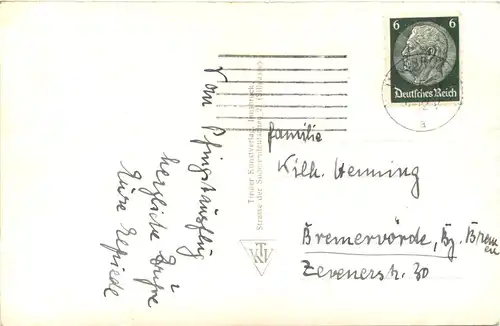 Vom Pfingstausflug
herzliche Grüße
Eure Elfriede
Tiroler Kunstverlag, Innsbruck,
Straße der Sudetendeutschen
TKV
6 6
Deutsches Reich
a
Familie
Wilh. Henning
Bremervörde, Bz. Bremen
Zevenerstr. 30